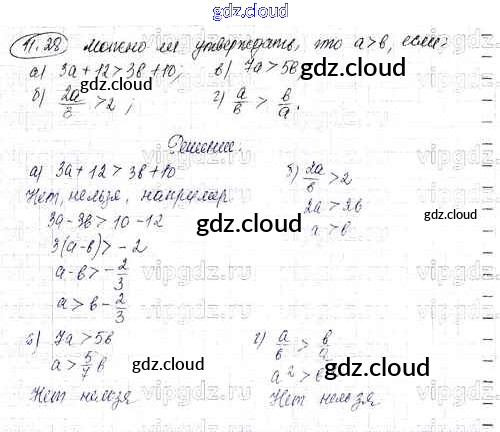 gdz.cloud
11.28 можно ли утверждать, что a>b, если:
а) 3a+12>3b+10; в) 7a>5b
б) 2a/b >2; г) a/b > b/a.
gdz.cloud gdz.cloud
Решение.
а) 3a+12>3b+10 б) 2a/b >2
Нет, нельзя, например 2a>2b
3a-3b>10-12 a>b
3(a-b)>-2
a-b>-2/3
a>b-2/3
gdz.cloud gdz.cloud
в) 7a>5b г) a/b > b/a
a>5/7 b a²>
Нет нельзя Нет нельзя
gdz.cloud gdz.cloud
vipgdz.ru